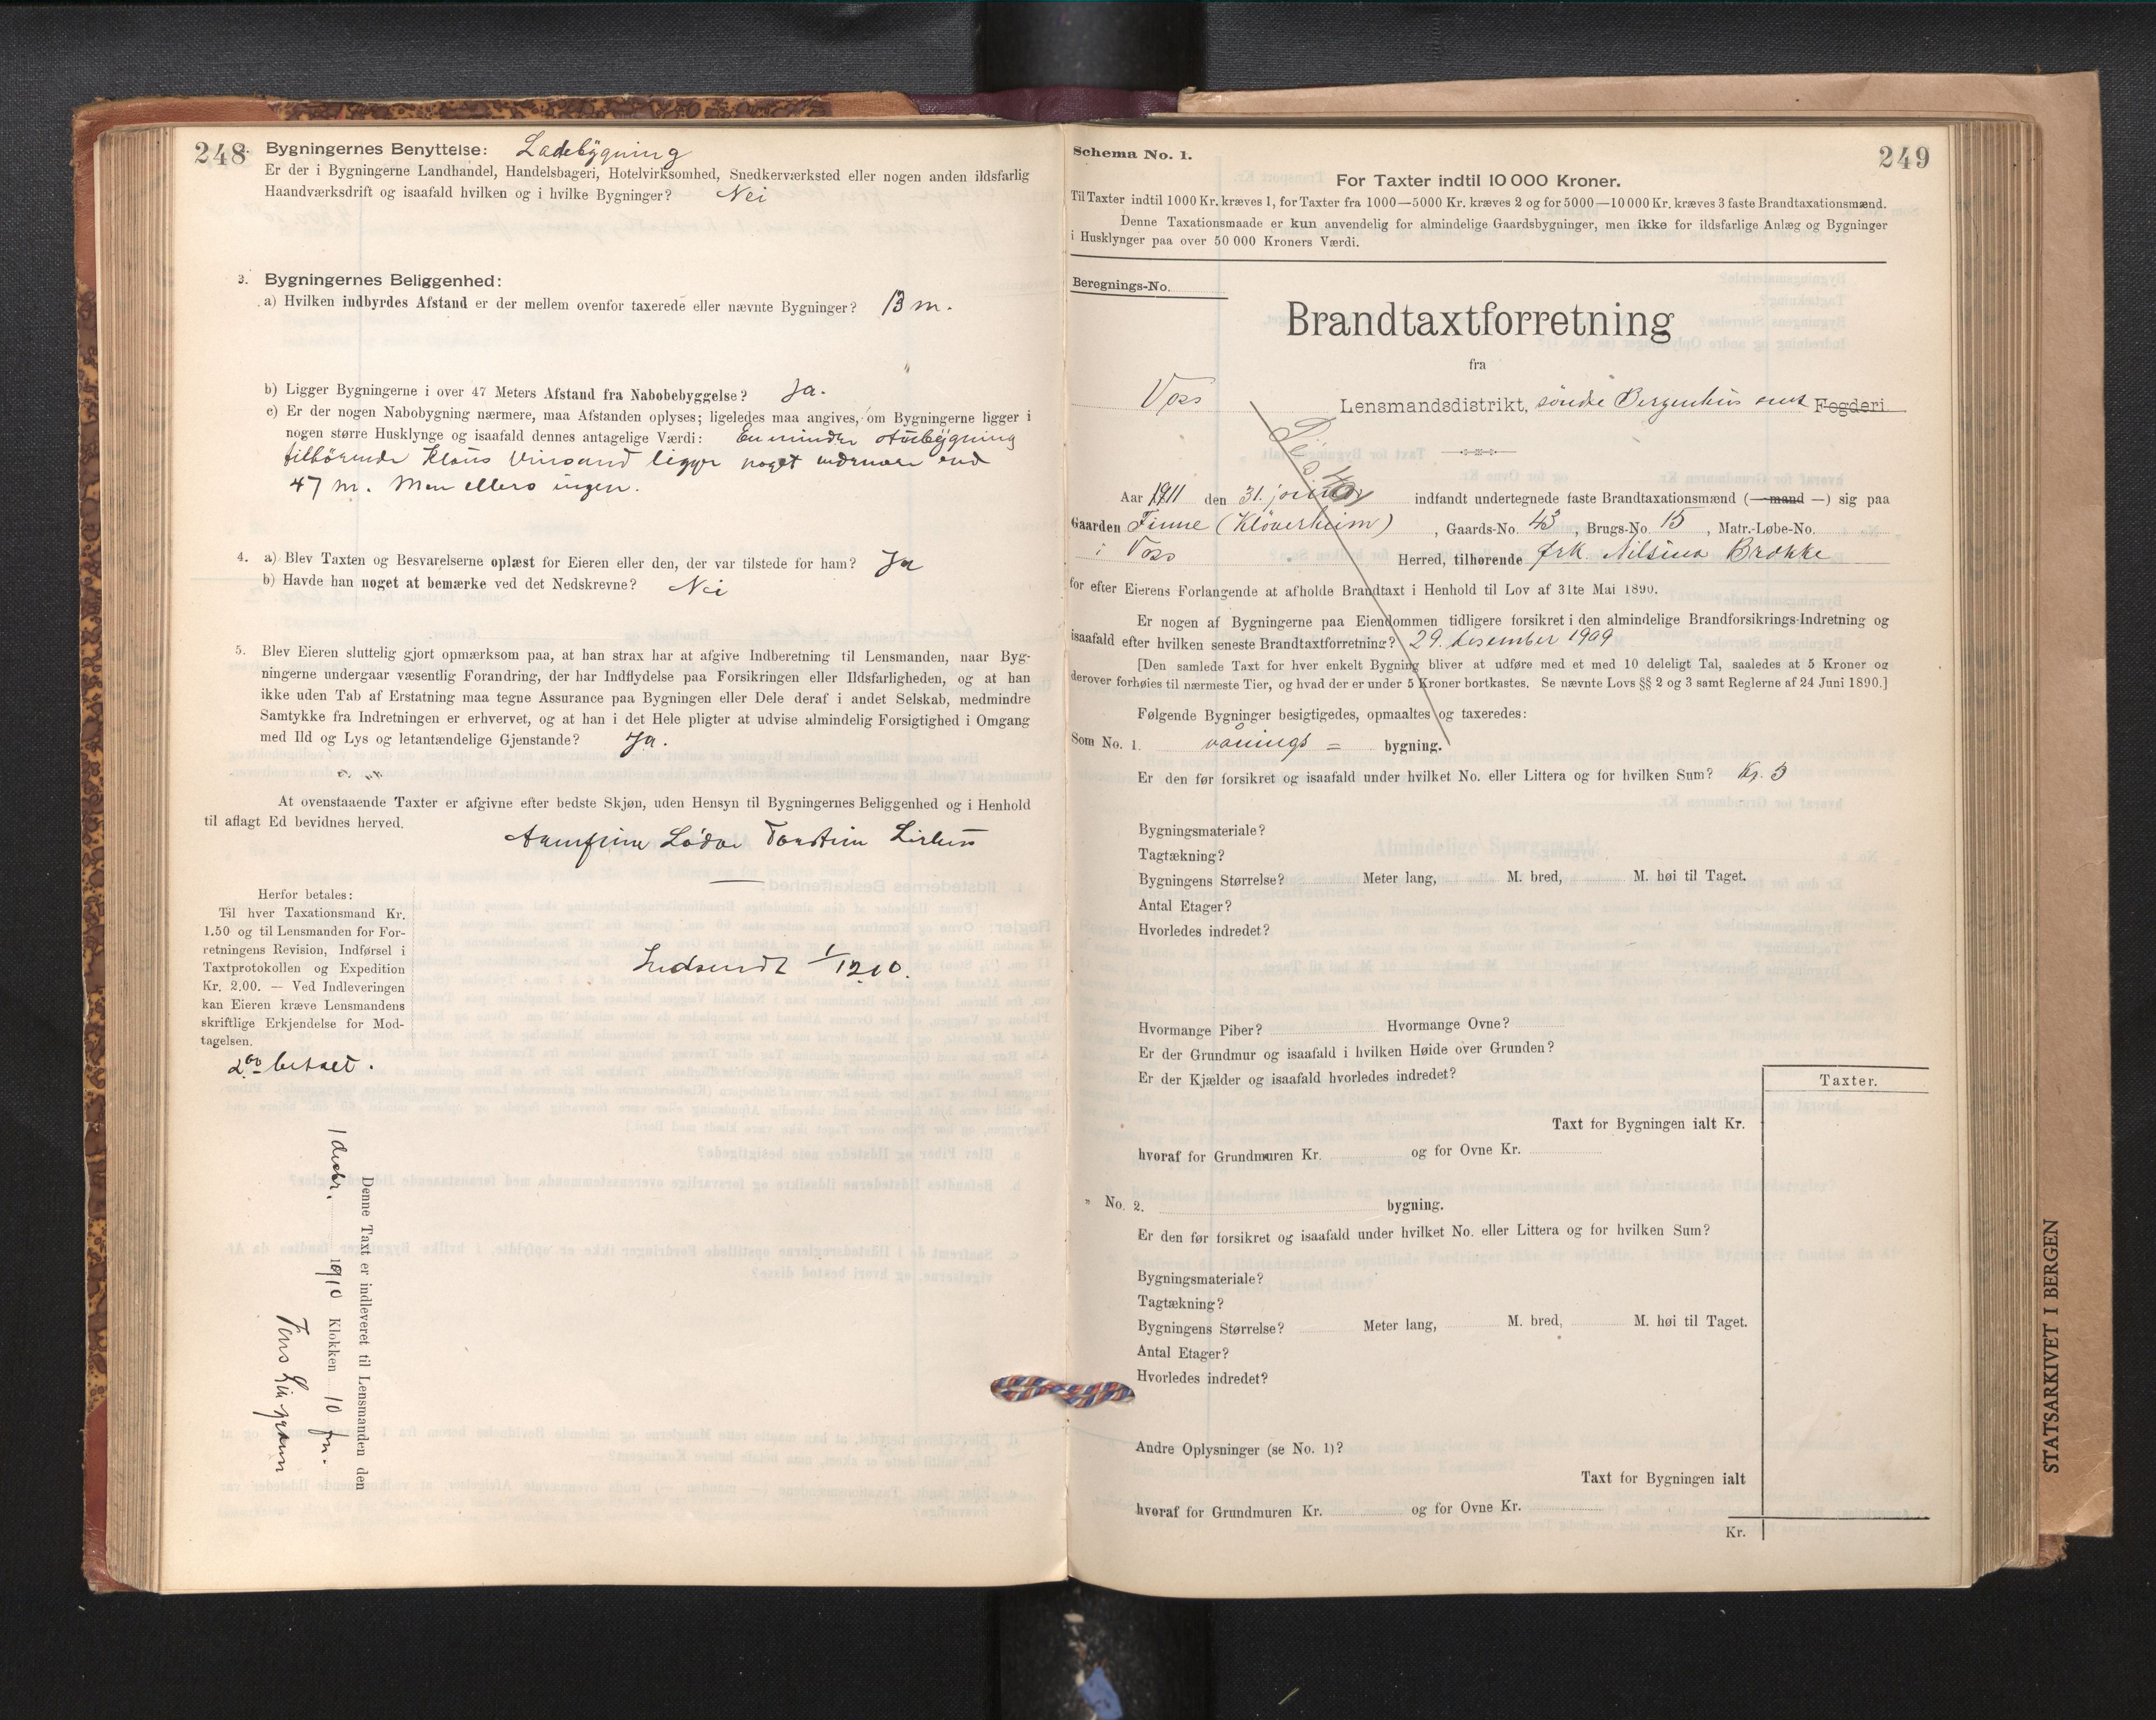 248
2. Bygningernes Benyttelse: Ladebygning
Er der i Bygningerne Landhandel, Handelsbageri, Hotelvirksomhed, Snedkerværksted eller nogen anden ildsfarlig
Haandværksdrift og isaafald hvilken og i hvilke Bygninger? Nei
3. Bygningernes Beliggenhed:
a) Hvilken indbyrdes Afstand er der mellem ovenfor taxerede eller nævnte Bygninger? 13 m.
b) Ligger Bygningerne i over 47 Meters Afstand fra Nabobebyggelse? Ja.
c) Er der nogen Nabobygning nærmere, maa Afstanden oplyses; ligeledes maa angives, om Bygningerne ligger i
nogen større Husklynge og isaafald dennes antagelige Værdi: En mindre
tilhörende Klaus Vinsand ligger noget nærmere end
47 m. Men ellers ingen.
4. a) Blev Taxten og Besvarelserne oplæst for Eieren eller den, der var tilstede for ham? Ja
b) Havde han noget at bemærke ved det Nedskrevne? Nei
5. Blev Eieren sluttelig gjort opmærksom paa, at han strax har at afgive Indberetning til Lensmanden, naar Byg-
ningerne undergaar væsentlig Forandring, der har Indflydelse paa Forsikringen eller Ildsfarligheden, og at han
ikke uden Tab af Erstatning maa tegne Assurance paa Bygningen eller Dele deraf i andet Selskab, medmindre
Samtykke fra Indretningen er erhvervet, og at han i det Hele pligter at udvise almindelig Forsigtighed i Omgang
med Ild og Lys og letantændelige Gjenstande? Ja.
At ovenstaaende Taxter er afgivne efter bedste Skjøn, uden Hensyn til Bygningernes Beliggenhed og i Henhold
til aflagt Ed bevidnes herved.
Herfor betales:
Til hver Taxationsmand Kr.
1.50 og til Lensmanden for For-
retningens Revision, Indførsel i
Taxtprotokollen og Expedition
Kr. 2.00. — Ved Indleveringen
kan Eieren kræve Lensmandens
skriftlige Erkjendelse for Mod-
tagelsen.
Indsendt 1/12 10.
2.00 betalt.
Denne Taxt er indleveret til Lensmanden den
1 decbr. 1910 Klokken 10 fm.
249
Schema No. 1.
For Taxter indtil 10 000 Kroner.
Til Taxter indtil 1000 Kr. kræves 1, for Taxter fra 1000—5000 Kr. kræves 2 og for 5000—10 000 Kr. kræves 3 faste Brandtaxationsmænd.
Denne Taxationsmaade er kun anvendelig for almindelige Gaardsbygninger, men ikke for ildsfarlige Anlæg og Bygninger
i Husklynger paa over 50 000 Kroners Værdi.
Beregnings-No.
Brandtaxtforretning
fra
Voss Lensmandsdistrikt, söndre Bergenhus amt Fogderi
Aar 1911 den 31. indfandt undertegnede faste Brandtaxationsmænd (— mand —) sig paa
Gaarden Finne (Klöverheim), Gaards-No. 43, Brugs-No. 15, Matr.-Løbe-No.
i Voss Herred, tilhørende frk. Nilsina Brokke
for efter Eierens Forlangende at afholde Brandtaxt i Henhold til Lov af 31te Mai 1890.
Er nogen af Bygningerne paa Eiendommen tidligere forsikret i den almindelige Brandforsikrings-Indretning og
isaafald efter hvilken seneste Brandtaxtforretning? 29. desember 1909
[Den samlede Taxt for hver enkelt Bygning bliver at udføre med et med 10 deleligt Tal, saaledes at 5 Kroner og
derover forhøies til nærmeste Tier, og hvad der er under 5 Kroner bortkastes. Se nævnte Lovs §§ 2 og 3 samt Reglerne af 24 Juni 1890.]
Følgende Bygninger besigtigedes, opmaaltes og taxeredes:
Som No. 1. vånings= bygning.
Er den før forsikret og isaafald under hvilket No. eller Littera og for hvilken Sum? Kr. 3
Bygningsmateriale?
Tagtækning?
Bygningens Størrelse? Meter lang, M. bred, M. høi til Taget.
Antal Etager?
Hvorledes indredet?
Hvormange Piber? Hvormange Ovne?
Er der Grundmur og isaafald i hvilken Høide over Grunden?
Er der Kjælder og isaafald hvorledes indredet?
Taxter.
Taxt for Bygningen ialt Kr.
hvoraf for Grundmuren Kr. og for Ovne Kr.
" No. 2. bygning.
Er den før forsikret og isaafald under hvilket No. eller Littera og for hvilken Sum?
Bygningsmateriale?
Tagtækning?
Bygningens Størrelse? Meter lang, M. bred, M. høi til Taget.
Antal Etager?
Hvorledes indredet?
Andre Oplysninger (se No. 1)?
Taxt for Bygningen ialt
hvoraf for Grundmuren Kr. og for Ovne Kr.
Kr.
STATSARKIVET I BERGEN